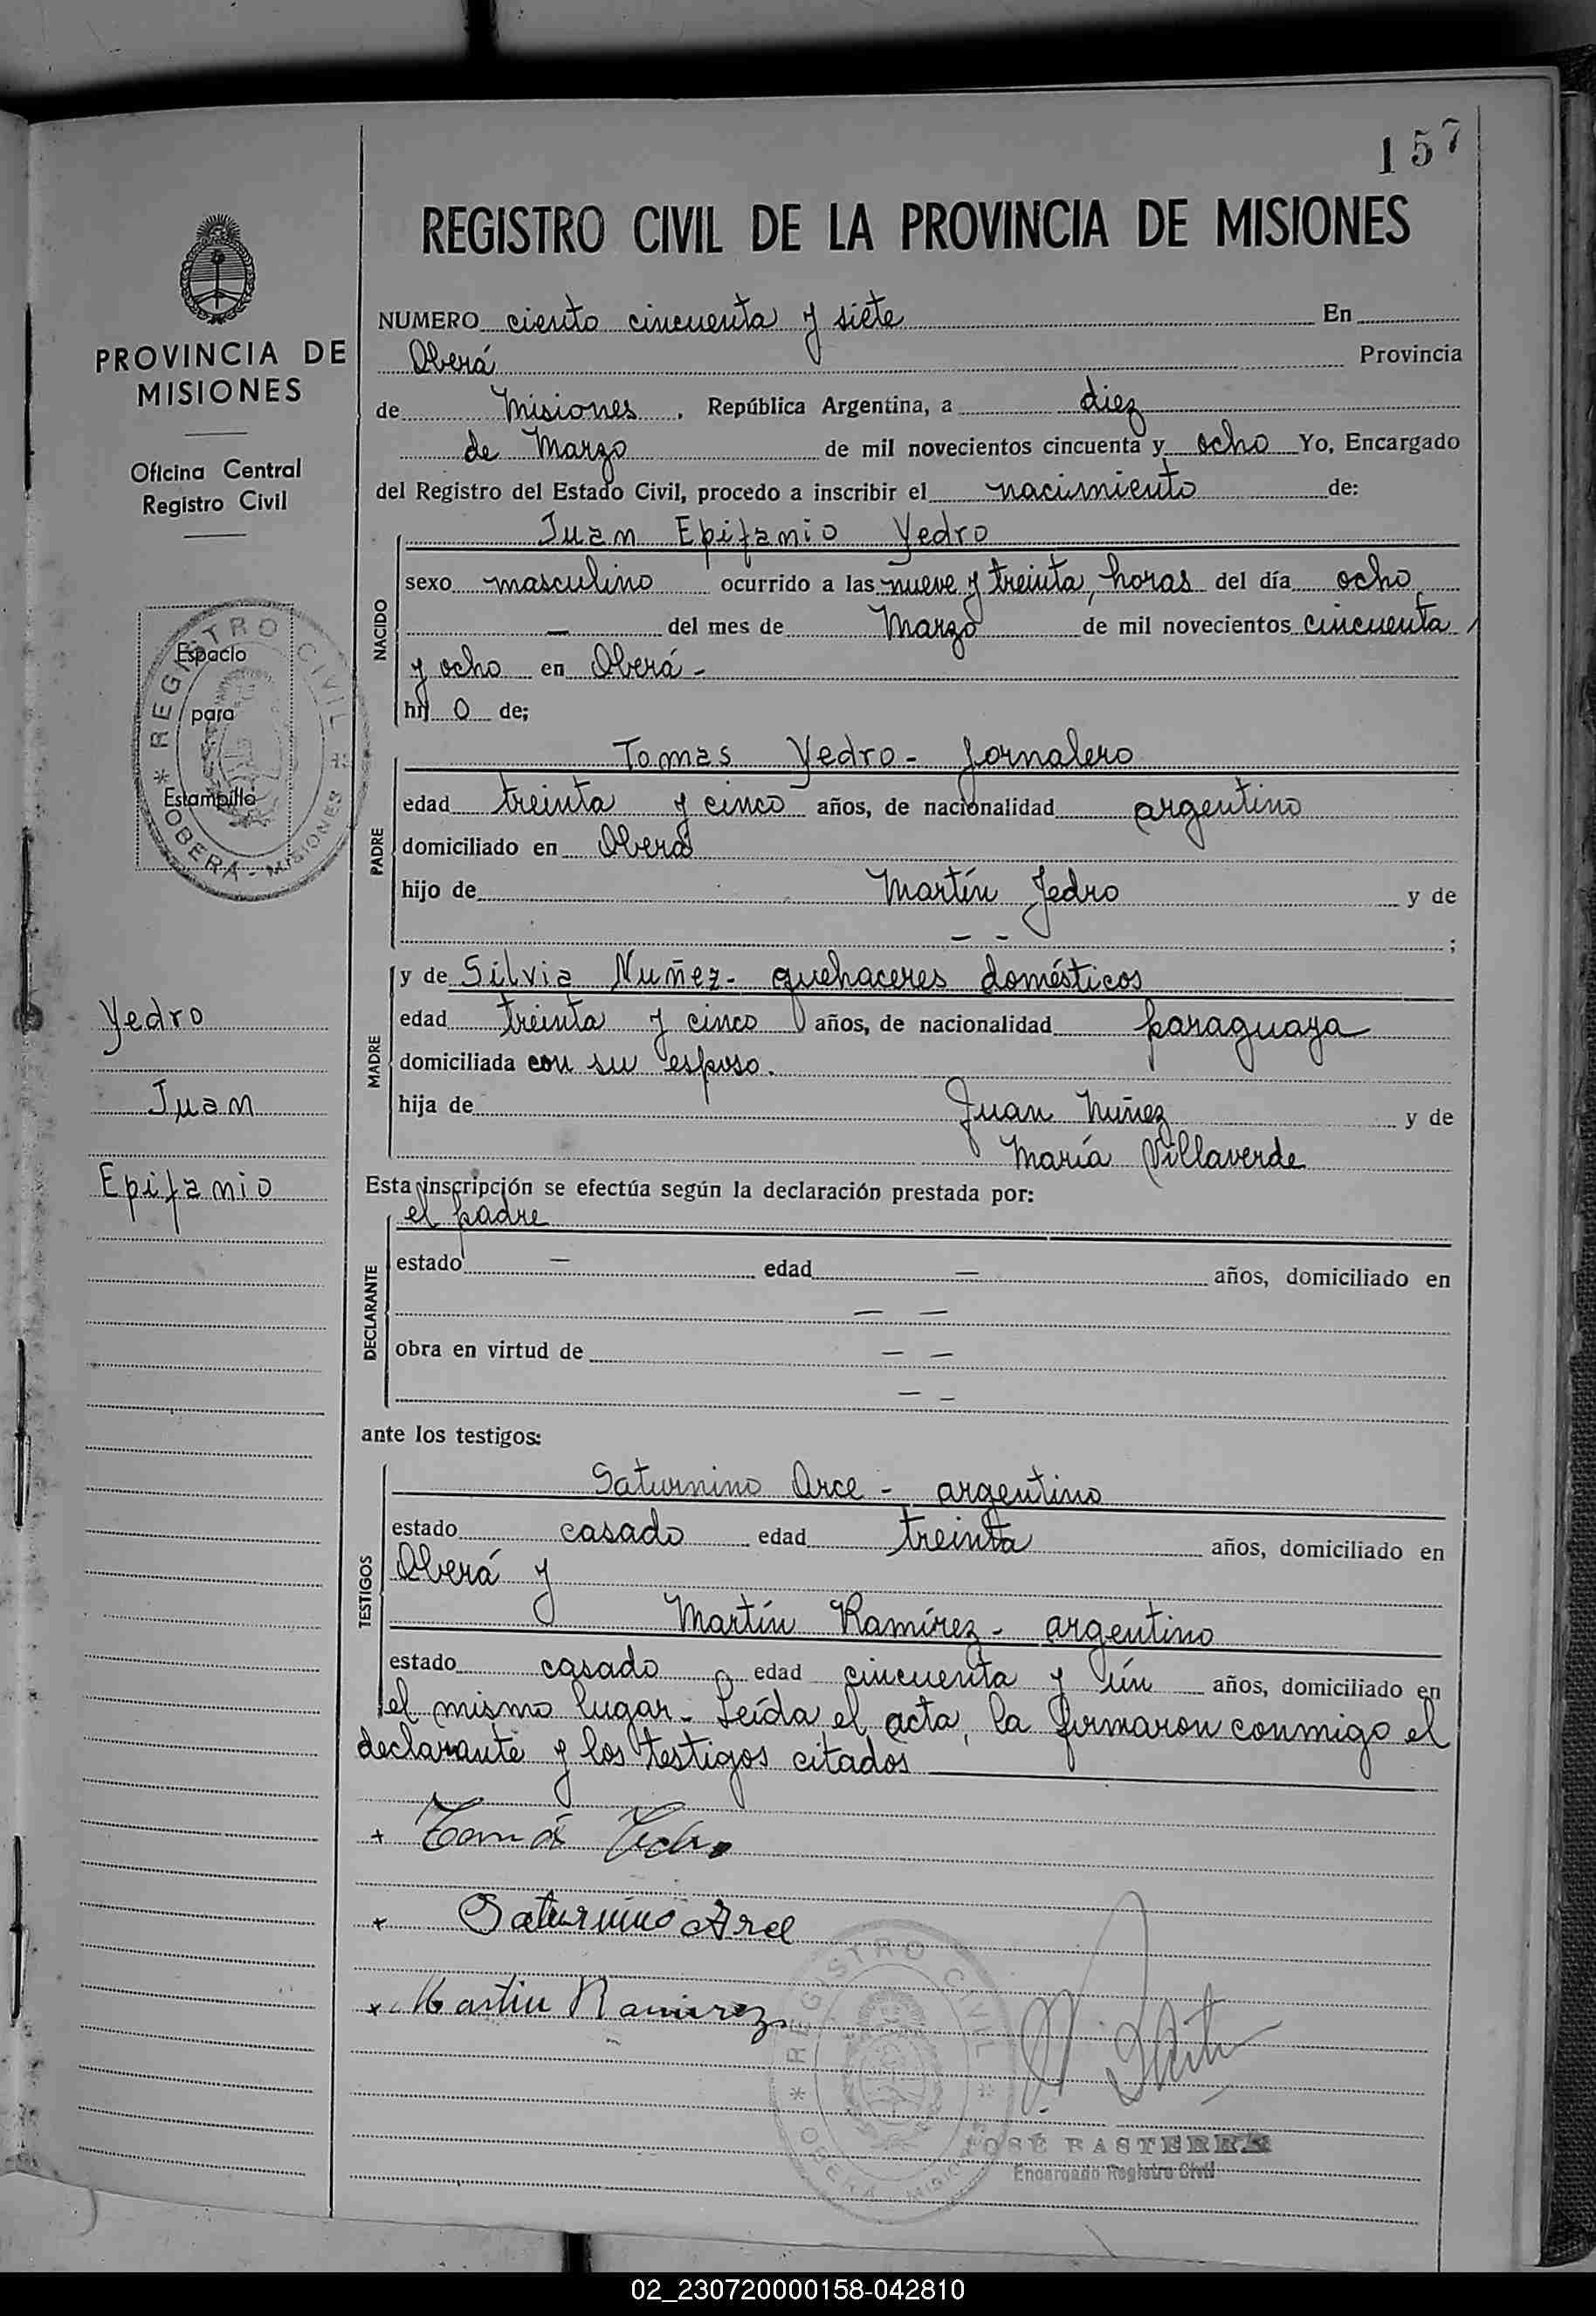 157
REGISTRO CIVIL DE LA PROVINCIA DE MISIONES
PROVINCIA DE
MISIONES
Oficina Central
Registro Civil
REGISTRO CIVIL
Espacio
para
Estampilla
* OBERÁ - MISIONES *
Yedro
Juan
Epifanio
NUMERO ciento cincuenta y siete En
Oberá Provincia
de Misiones . República Argentina, a diez
de Marzo de mil novecientos cincuenta y ocho Yo, Encargado
del Registro del Estado Civil, procedo a inscribir el nacimiento de:
NACIDO
Juan Epifanio Yedro
sexo masculino ocurrido a las nueve y treinta, horas del día ocho
— del mes de Marzo de mil novecientos cincuenta
y ocho en Oberá -
hij o de;
PADRE
Tomas Yedro - Jornalero
edad treinta y cinco años, de nacionalidad argentino
domiciliado en Oberá
hijo de Martín Jedro y de
— — ;
MADRE
y de Silvia Nuñez - quehaceres domésticos
edad treinta y cinco años, de nacionalidad paraguaya
domiciliada con su esposo.
hija de Juan Nuñez y de
María Villaverde
Esta inscripción se efectúa según la declaración prestada por:
DECLARANTE
el padre
estado — edad — años, domiciliado en
— —
obra en virtud de — —
— —
ante los testigos:
TESTIGOS
Saturnino Arce - argentino
estado casado edad treinta años, domiciliado en
Oberá y
Martín Ramírez - argentino
estado casado edad cincuenta y ún años, domiciliado en
el mismo lugar - Leída el acta, la firmaron conmigo el
declarante y los testigos citados
+ Tomás Yedro
+ Saturnino Arce
+ Martin Ramirez
REGISTRO CIVIL
* OBERÁ - MISIONES *
JOSÉ BASTERRA
Encargado Registro Civil
02_230720000158-042810